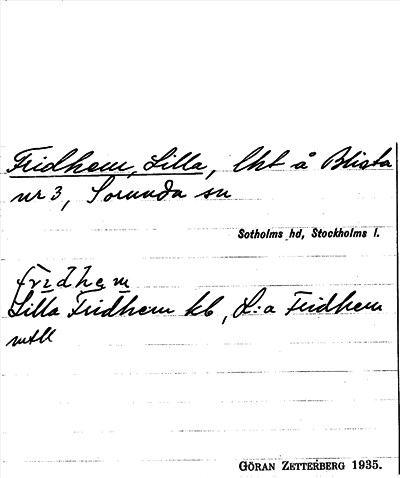 Fridhem, Lilla, lht å Blista
nr 3, Sorunda sn
Sotholms hd, Stockholms l.
fridhem
Lilla Fridhem kb, L:a Fridhem
mtll
GÖRAN ZETTERBERG 1935.